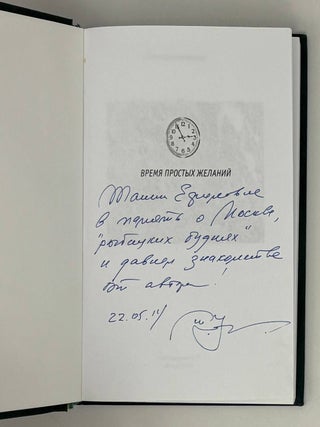 ВРЕМЯ ПРОСТЫХ ЖЕЛАНИЙ
в память о Москве,
"рыбацких буднях"
и давнем знакомстве
От автора.
22.05.14